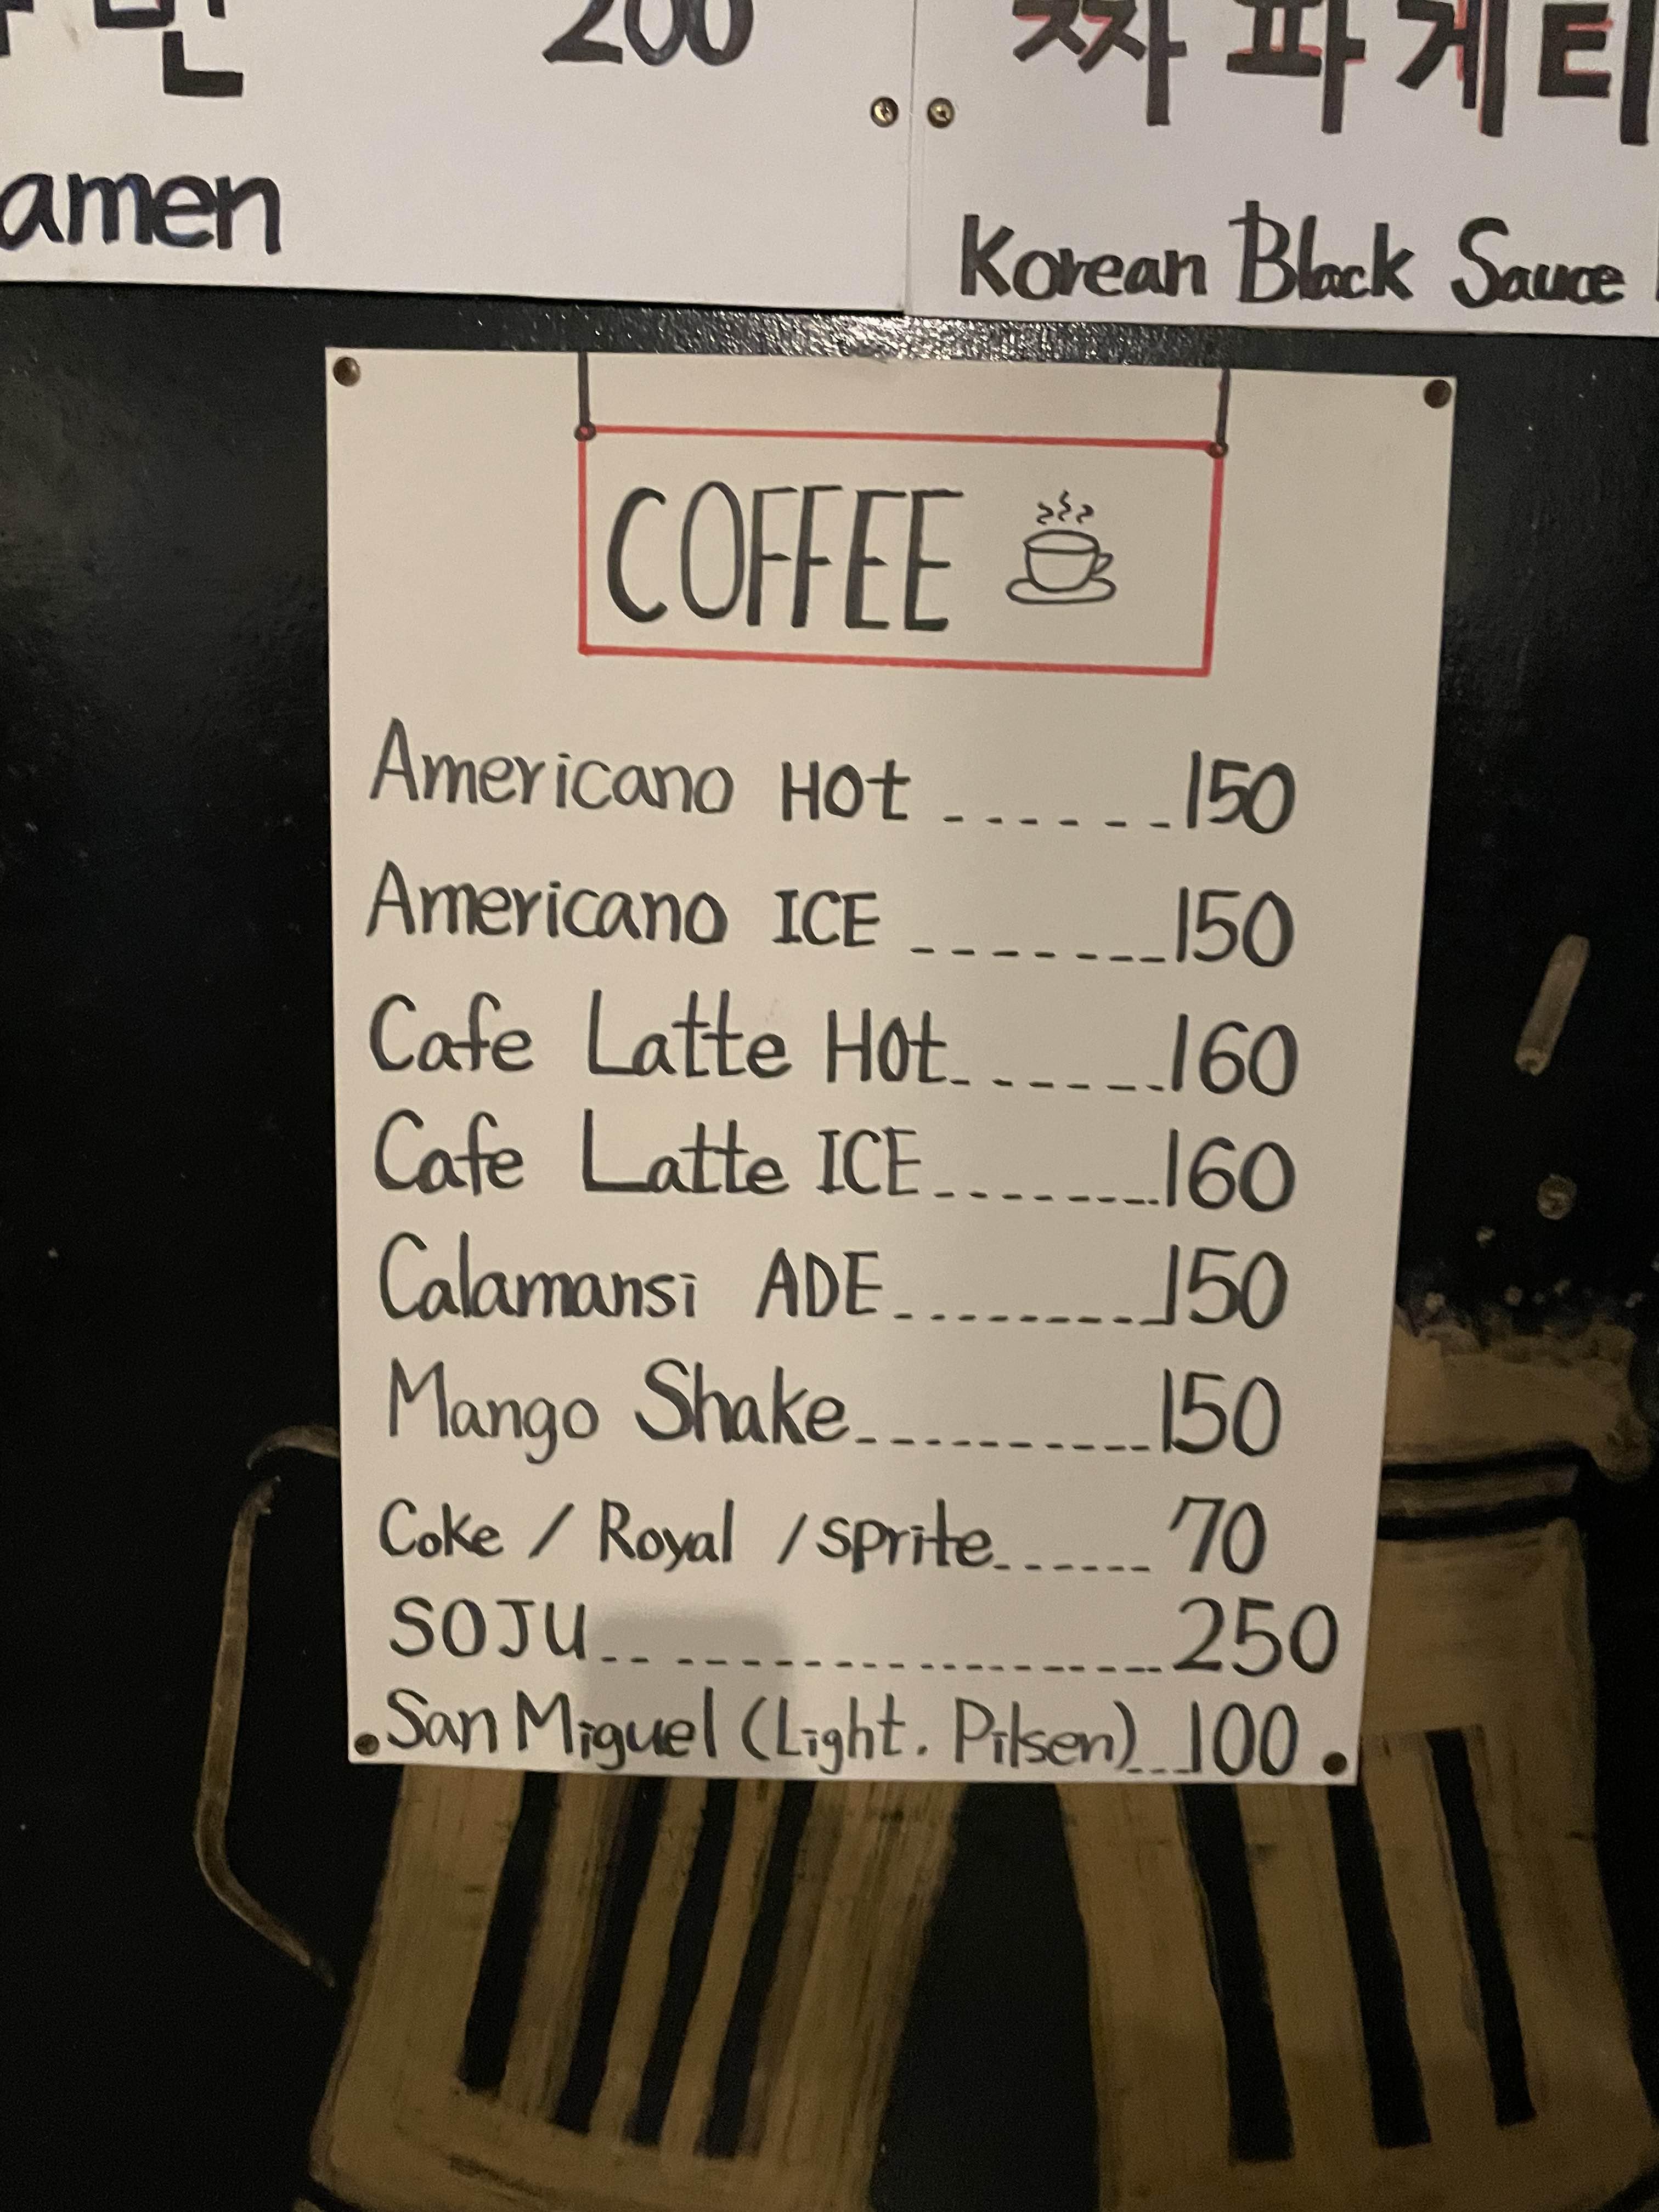 200
짜파게티
amen
Korean Black Sauce
COFFEE
Americano Hot ------150
Americano ICE -------150
Cafe Latte Hot------160
Cafe Latte ICE-------160
Calamansi ADE---------150
Mango Shake----------150
Coke / Royal / sprite------ 70
SOJU------------------250
San Miguel (Light. Pilsen)---100